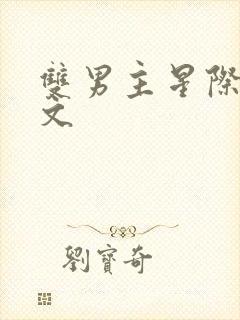 雙男主星際
文
劉寶奇